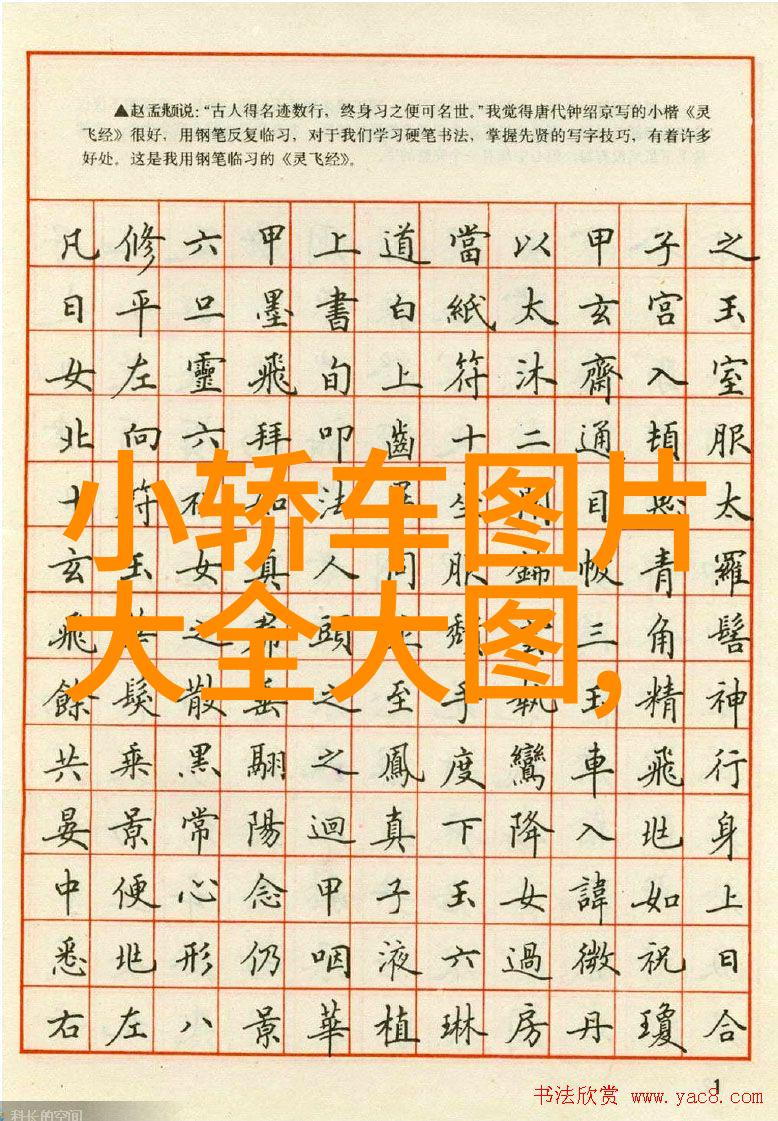 ▲赵孟頫说：“古人得名迹数行，终身习之便可名世。”我觉得唐代钟绍京写的小楷《灵
飞经》很好，用钢笔反复临习，对于我们学习硬笔书法，掌握先贤的写字技巧，有着许多
好处。这是我用钢笔临习的《灵飞经》。
凡修六甲上道當以甲子之
日平旦墨書白紙太玄宮玉
女左靈飛旬上符沐齋入室
北向六拜叩齒十二通頓服
十符祝如法坐閉目思太
玄玉女真人同服錦帔青羅
飛之帬頭頹雲三角髻
餘髮散垂之至手執玉精神
共乘黑翮之鳳度鸞車飛行
晏景常陽迴真下降入兆身
中便心念甲子玉女諱如上
悉兆形仍咽液六過微祝曰
右左八景華植琳房丹瓊合
小轿车图片
大全大图，
1
书法欣赏 www.yac8.com
科长的空间